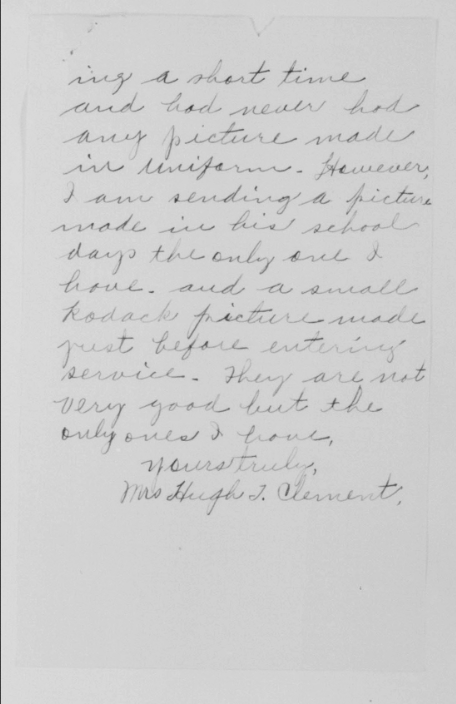 ing a short time
and had never had
any picture made
in uniform. However,
I am sending a picture
made in his school
days the only one I
have. and a small
Kodack picture made
just before entering
service. They are not
very good but the
only ones I have.
Yours truly,
Mrs Hugh T. Clement.